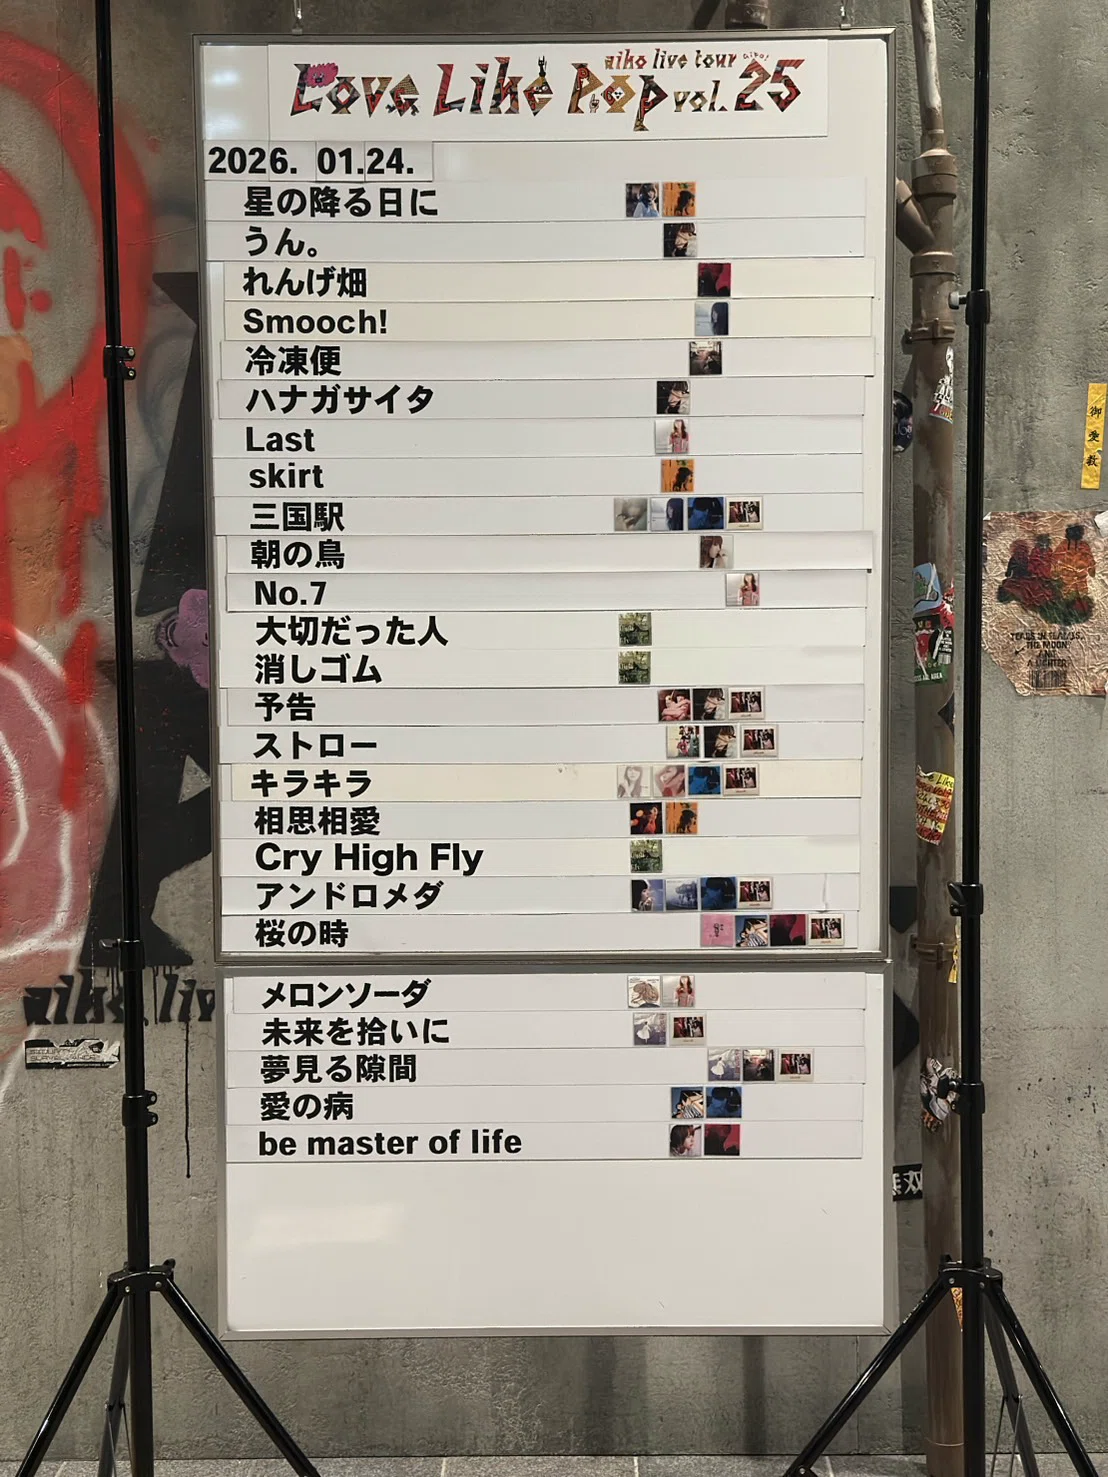 aiko live tour aipo!
Love Like Pop vol.25
2026. 01.24.
星の降る日に
うん。
れんげ畑
Smooch!
冷凍便
ハナガサイタ
Last
skirt
三国駅
朝の鳥
No.7
大切だった人
消しゴム
予告
ストロー
キラキラ
相思相愛
Cry High Fly
アンドロメダ
桜の時
メロンソーダ
未来を拾いに
夢見る隙間
愛の病
be master of life
aiko liv
御愛教
TEARS IN TEARJIS,
THE MOON
AND
A LIGHTER